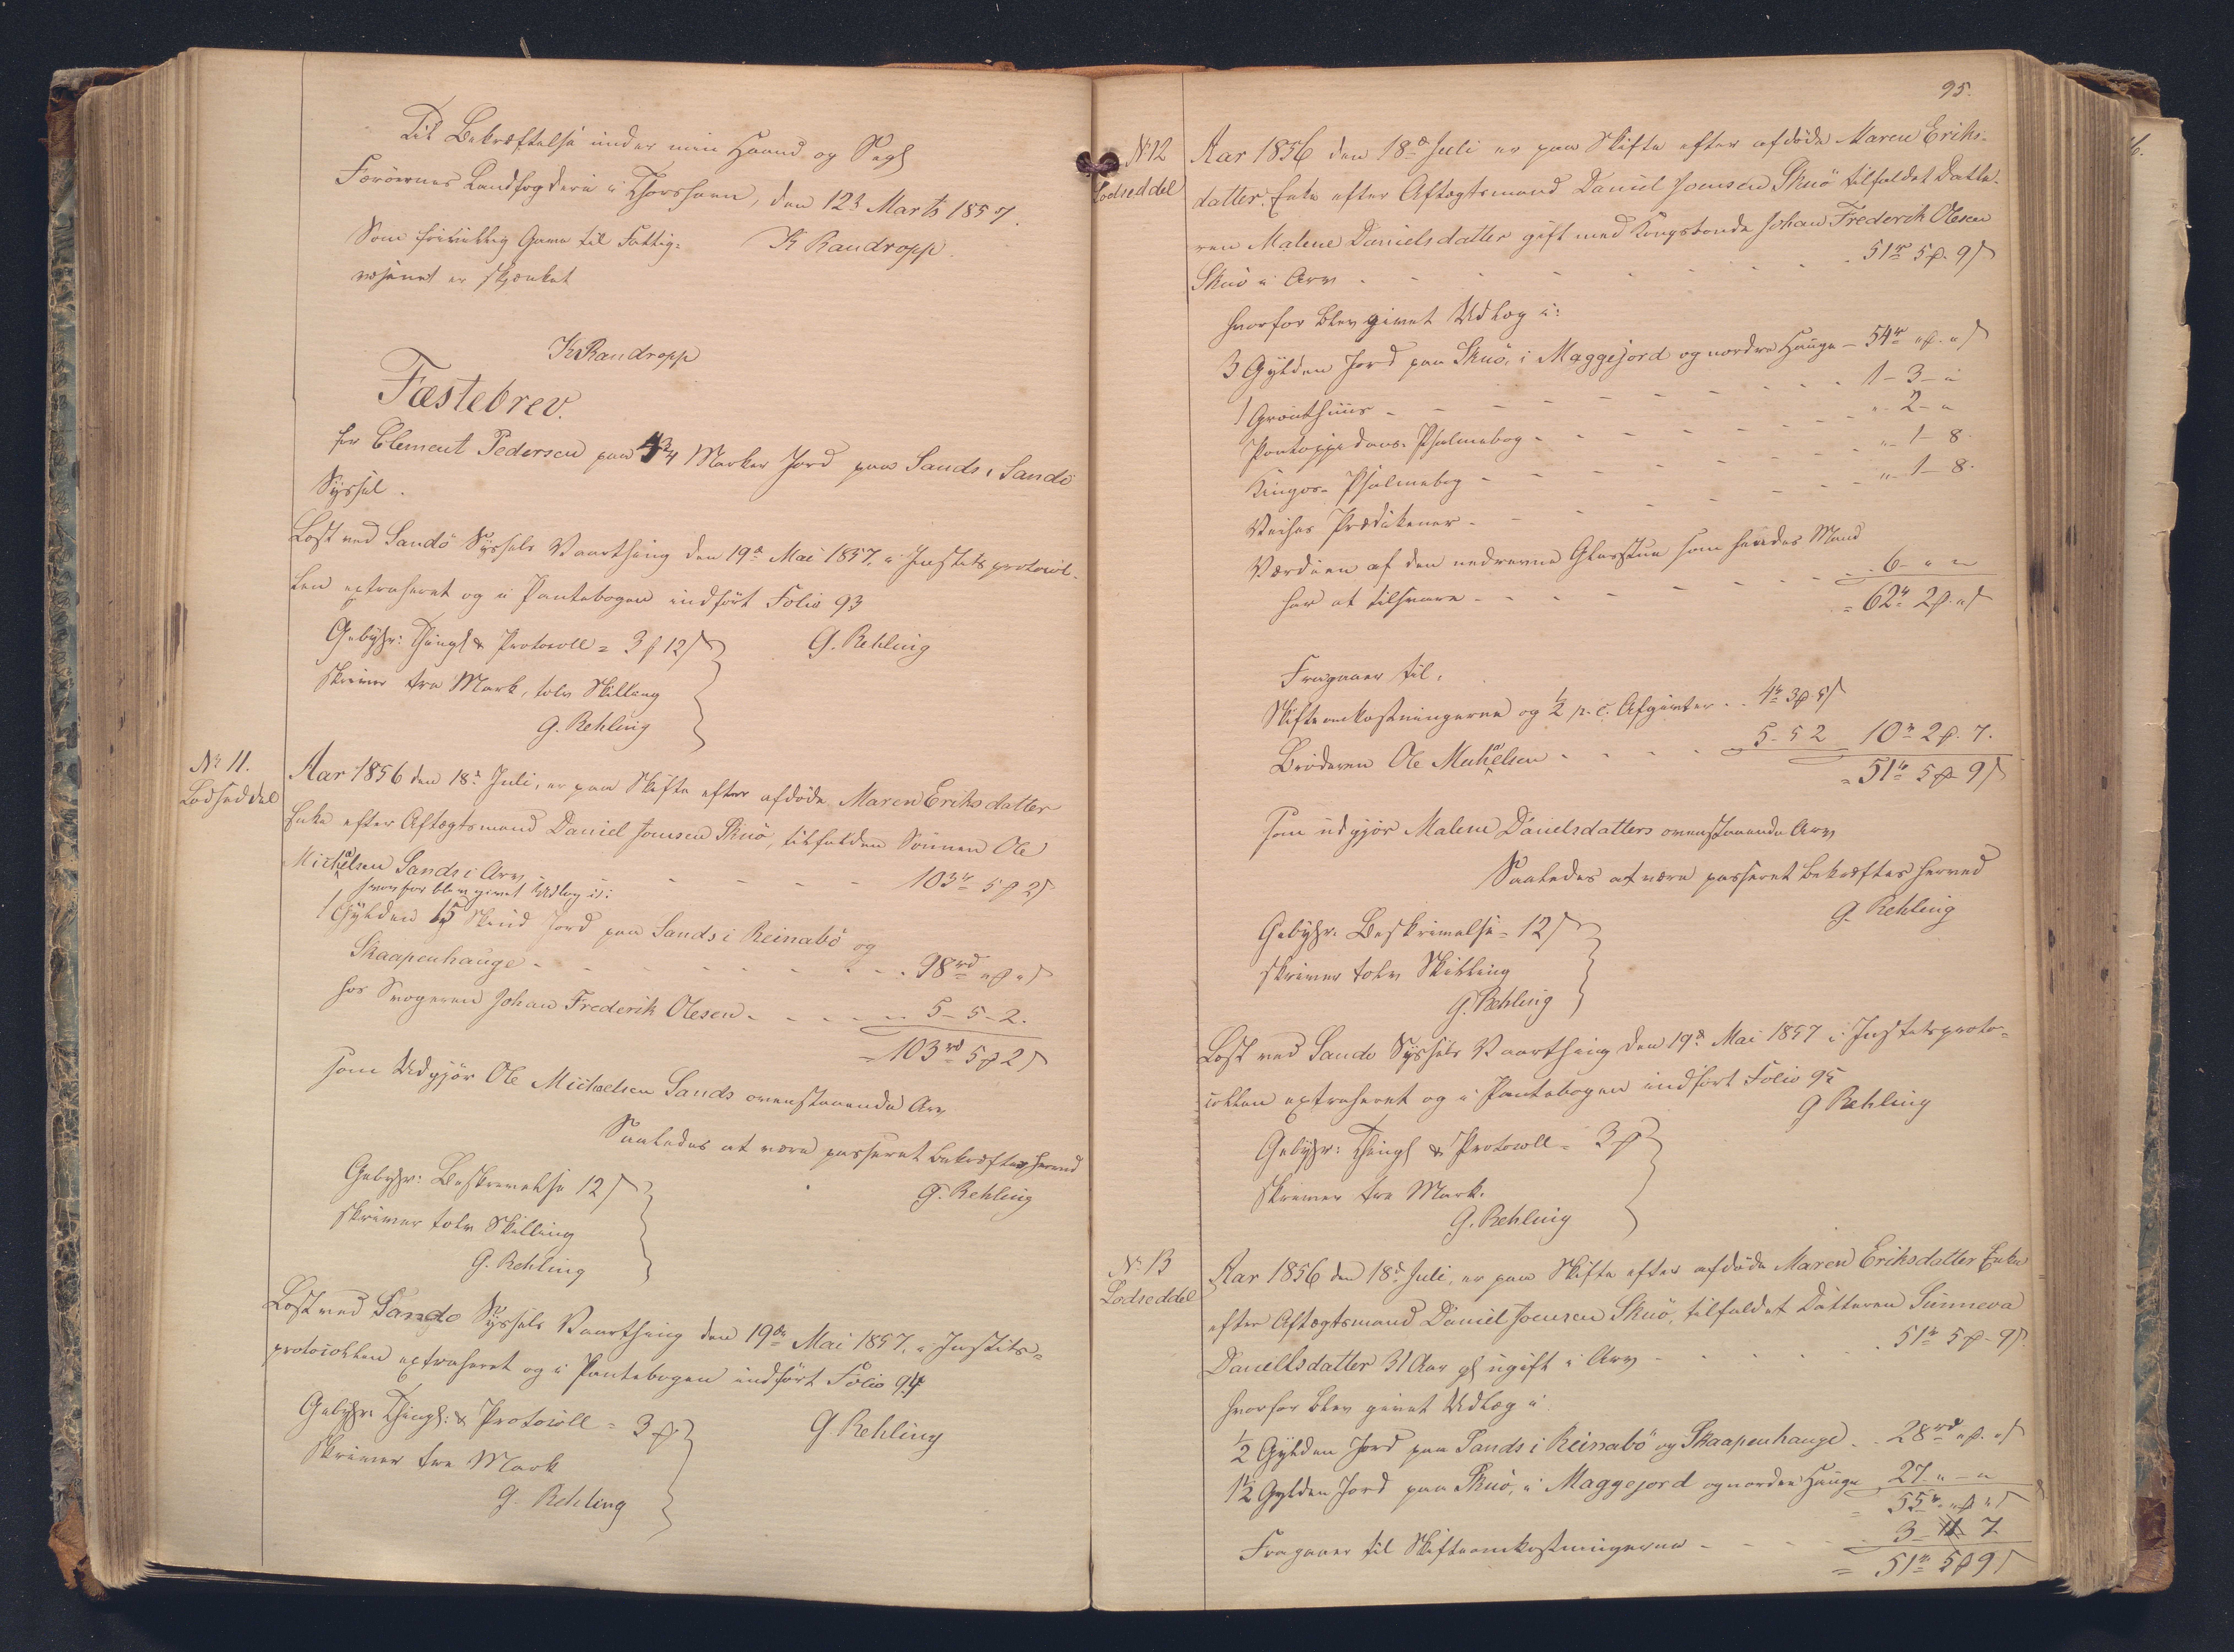 Til Bekræftelse under min Haand og Segl
Færöernes Landfogderi i Thorshavn, den 12t Marts 1857.
Som frivillig Gave til Fattig-
væsenet er skjænket
K Randropp.
K Randropp
Fæstebrev.
for Clement Pedersen paa 4 3/4 Marker Jord paa Sands i Sandö
Syssel.
Læst ved Sandö Syssels Vaarthing den 19de Mai 1857, i Justitsprotocol-
len extraheret og i Pantebogen indfört Folio 93
G. Rehling
Gebyhr: Thingl & Protocoll = 3 ℔ 12 ß
skriver tre Mark, tolv Skilling
G. Rehling
No 11.
Lodseddel
Aar 1856 den 18de Juli, er paa Skifte efter afdöde Maren Eriksdatter
Enke efter Aftægtsmand Daniel Joensen Skuö, tilfalden Sönnen Ole
Michaelsen Sands i Arv - - - - - 103rd 5 ℔ 2 ß
hvorfor blev givet Udlæg i:
1 Gylden 15 Skind Jord paa Sands i Reinabö og
Skaapenhauge - - - - - - 98rd " ℔ " ß
hos Svogeren Johan Frederik Olesen - - - - 5 - 5 - 2.
= 103rd 5 ℔ 2 ß
som Udgjör Ole Michaelsen Sands ovenstaaende Arv
Saaledes at være passeret bekræftes herved
G. Rehling
Gebyhr: Beskrivelse 12 ß
skriver tolv Skilling
G. Rehling
Læst ved Sandö Syssels Vaarthing den 19de Mai 1857, i Justits-
protocollen extraheret og i Pantebogen indfört Folio 94
G Rehling
Gebyhr: Thingl: & Protocoll = 3 ℔
Skriver tre Mark
G. Rehling
95.
No 12
Lodseddel
Aar 1856 den 18de Juli er paa Skifte efter afdöde Maren Eriks-
datter Enke efter Aftægtsmand Daniel Joensen Skuö tilfaldet Datte-
ren Malene Danielsdatter gift med Kongsbonde Johan Frederik Olesen
Skuö i Arv - - - - - - 51rd 5 ℔ 9 ß
hvorfor blev givet Udlæg i:
3 Gylden Jord paa Skuö, i Maggejord og nordre Hauge - 54rd " ℔ " ß
1 Gröuthuus - - - - - - 1 - 3 - "
Pontoppidans Psalmebog - - - - - " - 2 - "
Kingos Psalmebog - - - - - " - 1 - 8.
Prædikener - - - - - " - 1 - 8.
Værdien af den nedrevne Glasstue som hendes Mand
har at tilsvare - - - - - 6 - " - "
= 62rd 2 ℔ " ß
Fragaaer til:
Skifteomkostningerne og 1/2 p. c. Afgivter - - 4rd 3 ℔ 5 ß
Broderen Ole Michaelsen - - - - 5 - 5 2 10rd 2 ℔ 7.
= 51rd 5 ℔ 9 ß
som udgjör Malene Danielsdatters ovenstaaende Arv
Saaledes at være passeret bekræftes herved
G. Rehling
Gebyhr. Beskrivelse = 12 ß
skriver tolv Skilling
G. Rehling
Læst ved Sandö Syssels Vaarthing den 19de Mai 1857 i Justitsproto-
collen extraheret og i Pantebogen indfört Folio 95
G Rehling
Gebyhr: Thingl & Protocoll = 3 ℔
skriver tre Mark.
G. Rehling
No 13
Lodseddel
Aar 1856 den 18de Juli, er paa Skifte efter afdöde Maren Eriksdatter Enke
efter Aftægtsmand Daniel Joensen Skuö, tilfaldet Datteren Sunneva
Danielsdatter 31 Aar gl ugift i Arv - - - - 51rd 5 ℔ 9 ß.
hvorfor blev givet Udlæg i
1/2 Gylden Jord paa Sands i Reinabö og Skaapenhauge - - 28rd " ℔ " ß
1 1/2 Gylden Jord paa Skuö, i Maggejord og nordre Hauge 27 - " - "
= 55rd " ℔ " ß
Fragaaer til Skifteomkostningerne - - - - 3 - 7
= 51rd 5 ℔ 9 ß